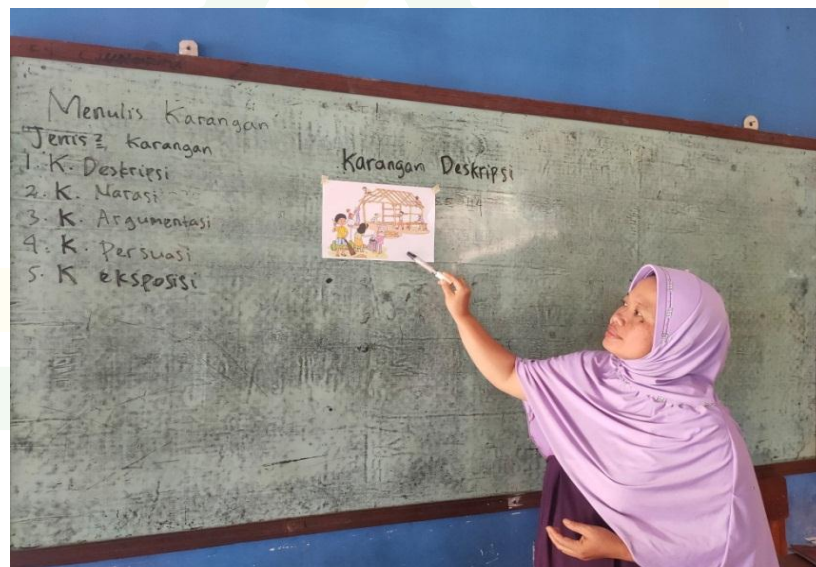 Menulis Karangan
Jenis2 Karangan
1. K. Deskripsi
2. K. Narasi
3. K. Argumentasi
4. K. Persuasi
5. K eksposisi
Karangan Deskripsi